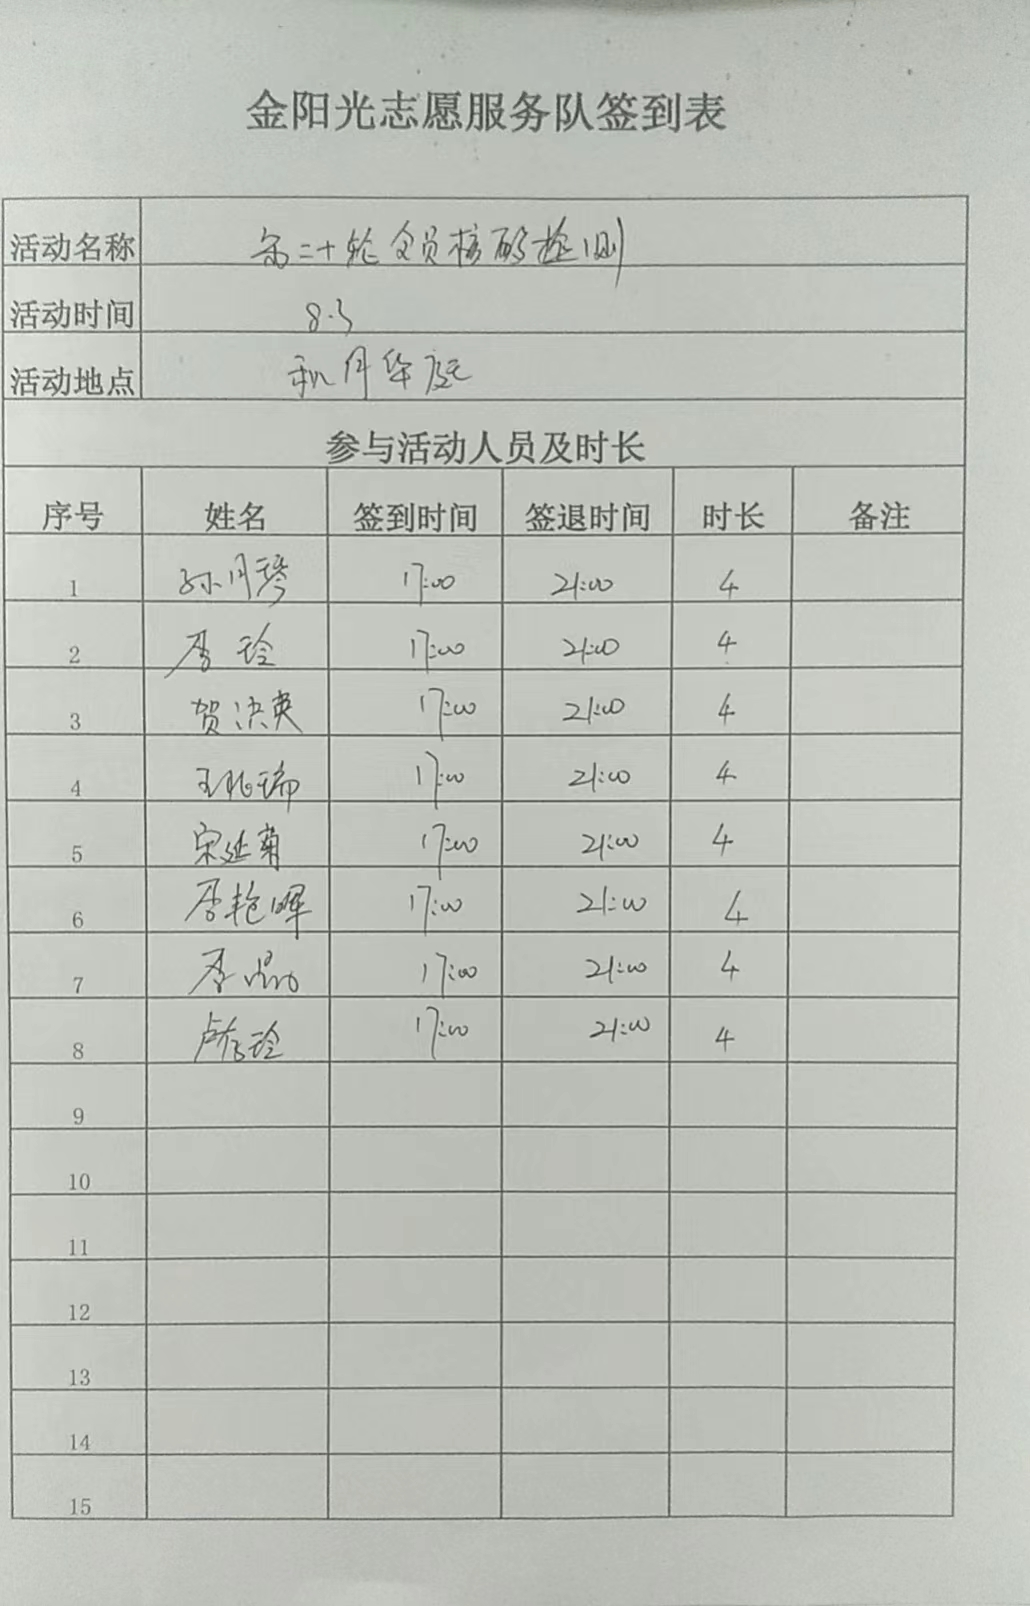 金阳光志愿服务队签到表
活动名称 第二十轮全员核酸检测
活动时间 8.3
活动地点 秋月华庭
参与活动人员及时长
序号 姓名 签到时间 签退时间 时长 备注
1 孙月琴 17:00 21:00 4
2 李玲 17:00 21:00 4
3 贺洪英 17:00 21:00 4
4 王兆瑞 17:00 21:00 4
5 宋延菊 17:00 21:00 4
6 李艳晖 17:00 21:00 4
7 李晶 17:00 21:00 4
8 17:00 21:00 4
9
10
11
12
13
14
15